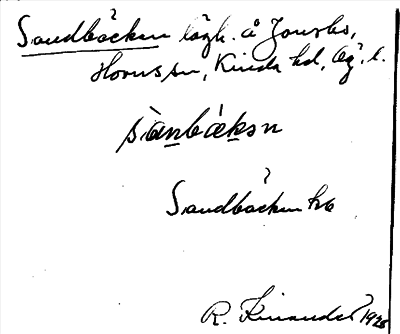 Sandbäcken lägh. å Jonsbo,
Horns sn, Kinda hd, Ög. l.
sànbæksn
Sandbäcken hb
R. Kinander 1926